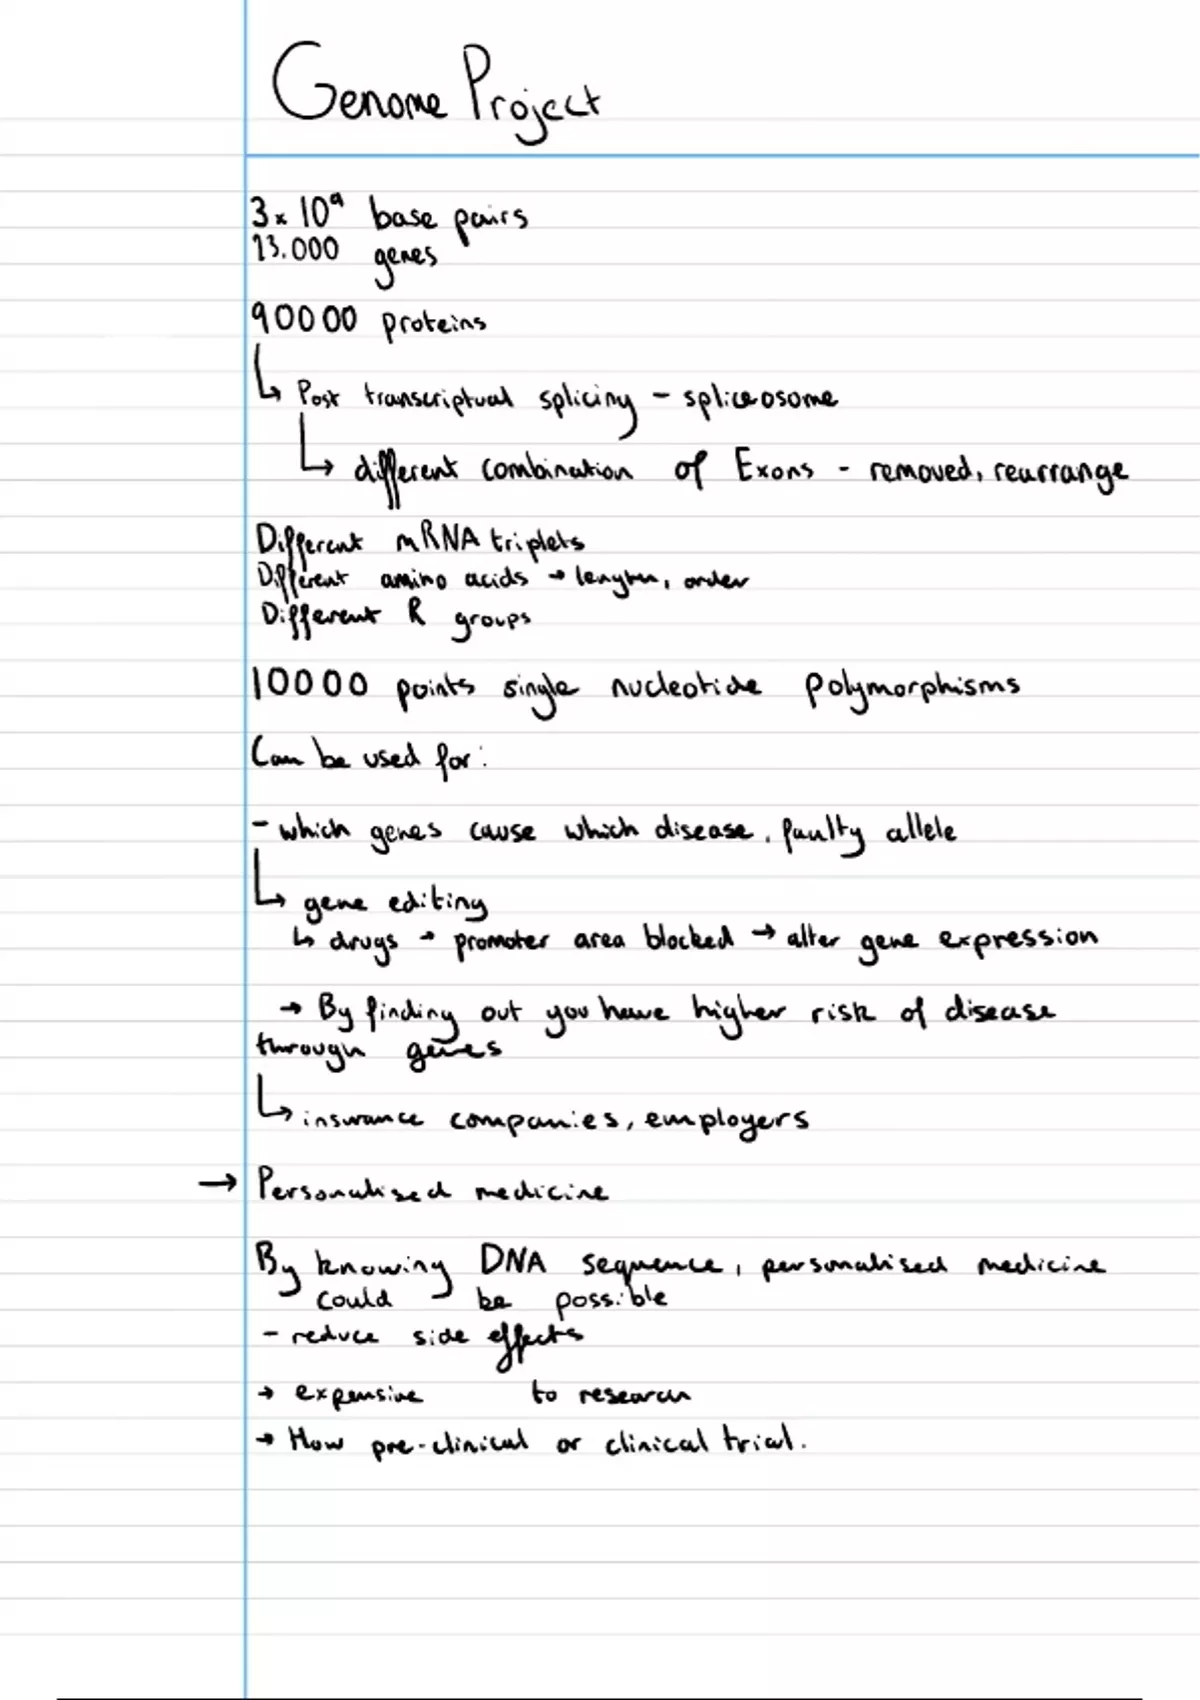 Genome Project
3 × 10⁹ base pairs
23.000 genes
90000 proteins
↳ Post transcriptual splicing - spliceosome
↳ different combination of Exons - removed, rearrange
Different mRNA triplets
Different amino acids → length, order
Different R groups
10000 points single nucleotide polymorphisms
Can be used for:
- which genes cause which disease, faulty allele
↳ gene editing
↳ drugs → promoter area blocked → alter gene expression
→ By finding out you have higher risk of disease
through genes
↳ insurance companies, employers
→ Personalised medicine
By knowing DNA sequence, personalised medicine
could be possible
- reduce side effects
→ expensive to research
→ How pre-clinical or clinical trial.